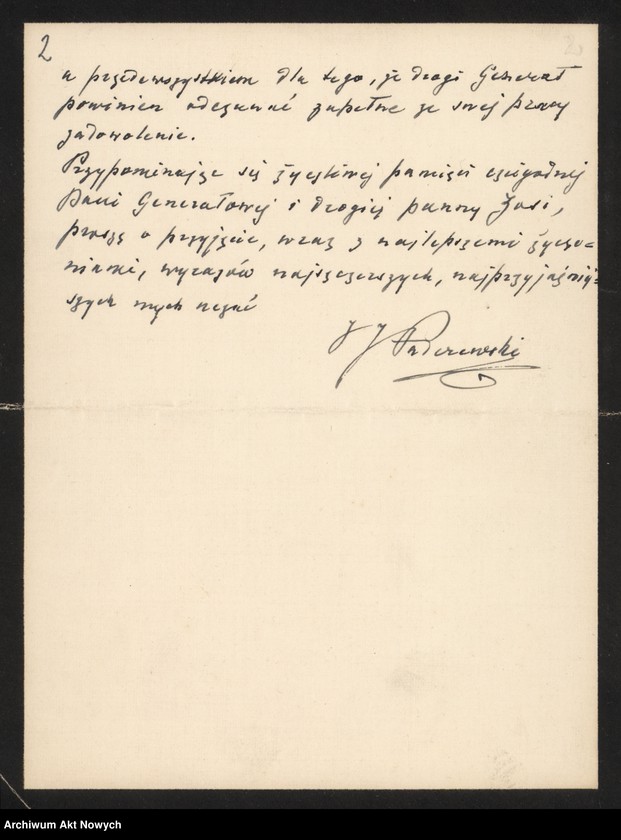 2
a przedewszystkiem dla tego, że drogi Generał
powinien odczuwać zupełne ze swej pracy
zadowolenie.
Przypominając się życzliwej pamięci czcigodnej
Pani Generałowej i drogiej panny Zosi,
proszę o przyjęcie, wraz z najlepszemi życze-
niami, wyrazów najszczerszych, najprzyjaźniej-
szych mych uczuć
I J Paderewski
Archiwum Akt Nowych